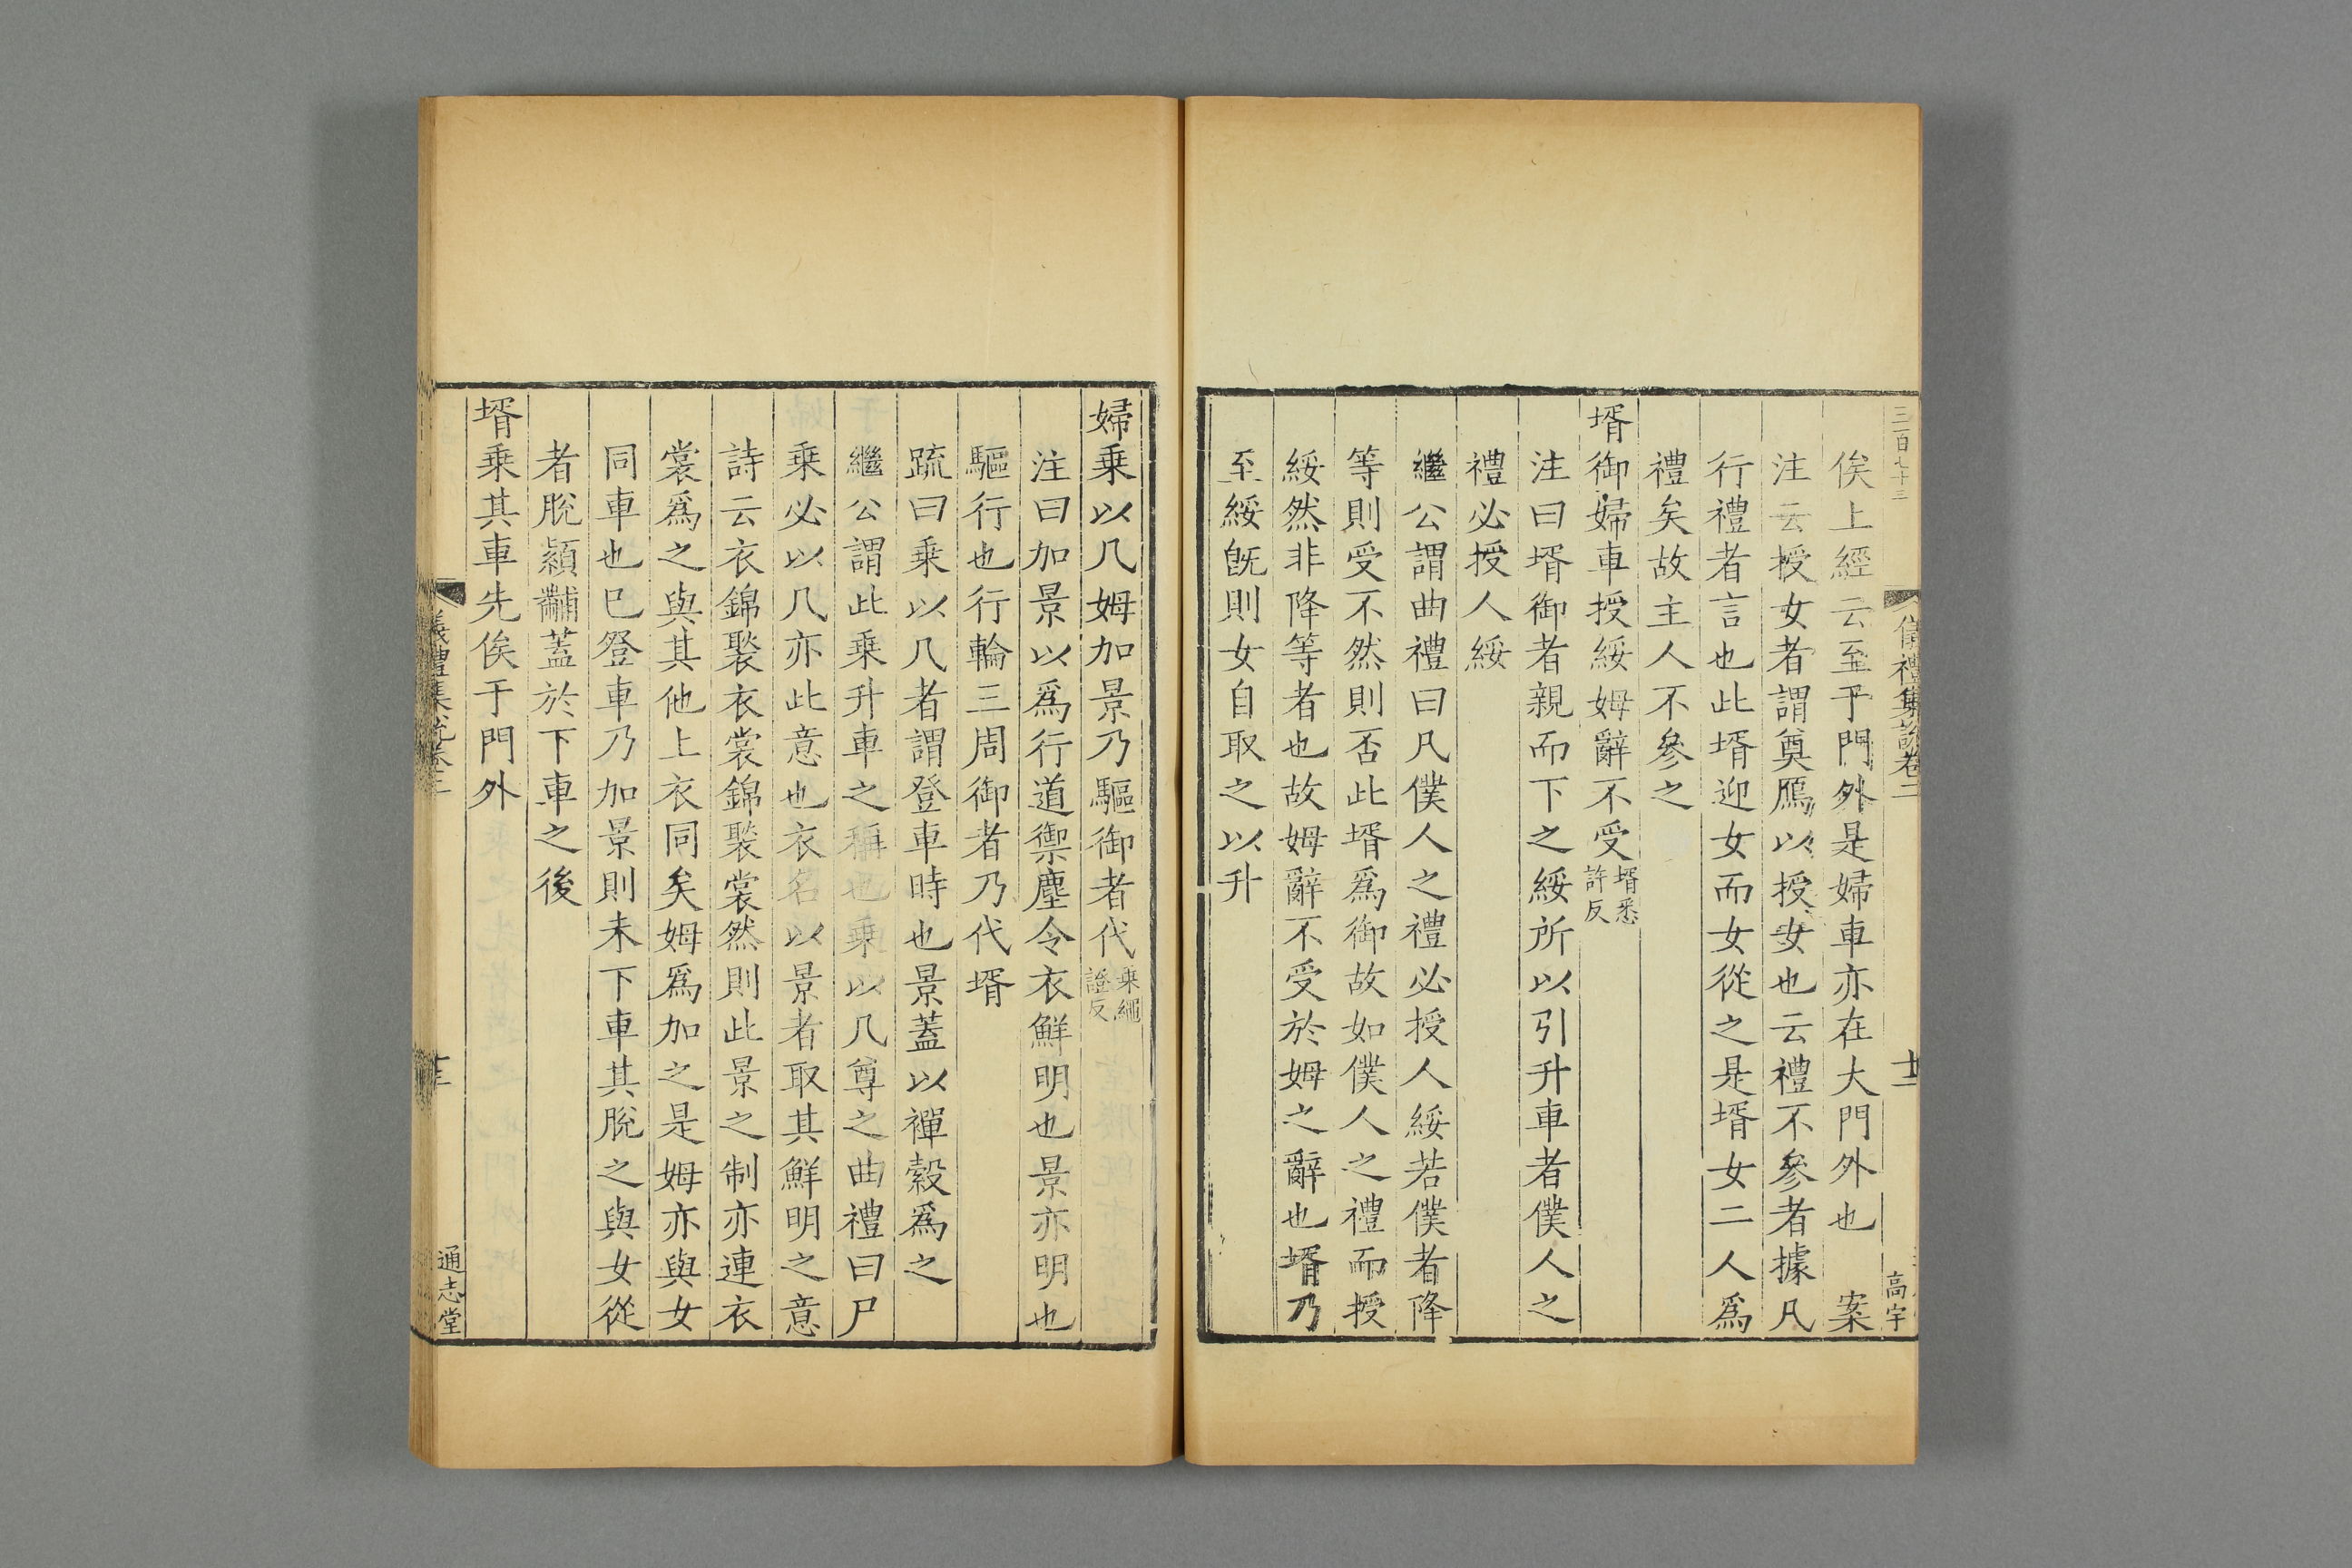 三百七十三
儀禮集說卷二
十二
高宇
俟上經云至于門外是婦車亦在大門外也　案
注云授女者謂奠鴈以授女也云禮不參者據凡
行禮者言也此壻迎女而女從之是壻女二人爲
禮矣故主人不參之
壻御婦車授綏姆辭不受壻悉許反
注曰壻御者親而下之綏所以引升車者僕人之
禮必授人綏
繼公謂曲禮曰凡僕人之禮必授人綏若僕者降
等則受不然則否此壻爲御故如僕人之禮而授
綏然非降等者也故姆辭不受於姆之辭也壻乃
至綏旣則女自取之以升
婦乗以几姆加景乃驅御者代乗繩證反
注曰加景以爲行道禦塵令衣鮮明也景亦明也
驅行也行輪三周御者乃代壻
疏曰乗以几者謂登車時也景蓋以襌縠爲之
繼公謂此乗升車之稱也乗以几尊之曲禮曰尸
乗必以几亦此意也衣名以景者取其鮮明之意
詩云衣錦褧衣裳錦褧裳然則此景之制亦連衣
裳爲之與其他上衣同矣姆爲加之是姆亦與女
同車也巳登車乃加景則未下車其脫之與女從
者脫潁黼蓋於下車之後
壻乗其車先俟于門外
儀禮集說卷二
十三
通志堂